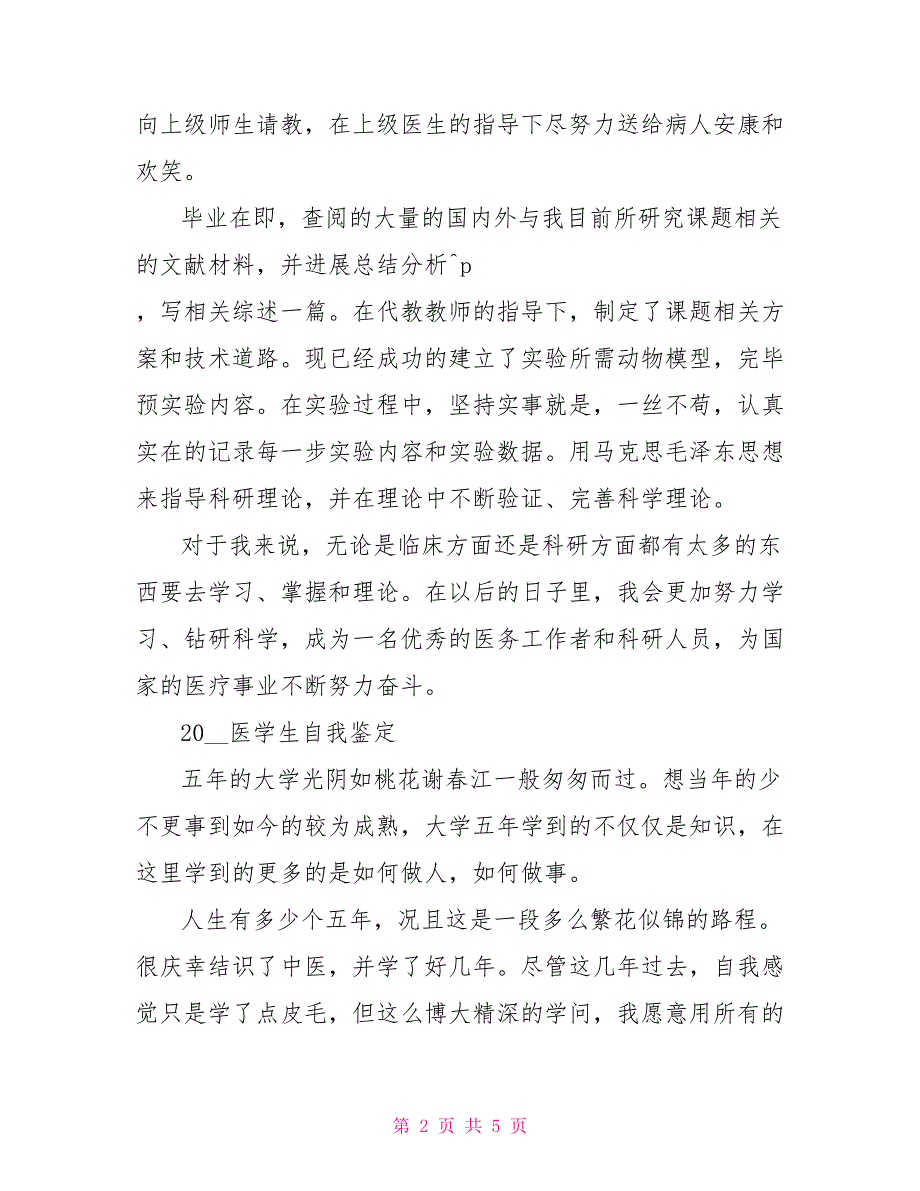 向上级师生请教，在上级医生的指导下尽努力送给病人安康和
欢笑。
毕业在即，查阅的大量的国内外与我目前所研究课题相关
的文献材料，并进展总结分析^p
，写相关综述一篇。在代教教师的指导下，制定了课题相关方
案和技术道路。现已经成功的建立了实验所需动物模型，完毕
预实验内容。在实验过程中，坚持实事就是，一丝不苟，认真
实在的记录每一步实验内容和实验数据。用马克思毛泽东思想
来指导科研理论，并在理论中不断验证、完善科学理论。
对于我来说，无论是临床方面还是科研方面都有太多的东
西要去学习、掌握和理论。在以后的日子里，我会更加努力学
习、钻研科学，成为一名优秀的医务工作者和科研人员，为国
家的医疗事业不断努力奋斗。
20__医学生自我鉴定
五年的大学光阴如桃花谢春江一般匆匆而过。想当年的少
不更事到如今的较为成熟，大学五年学到的不仅仅是知识，在
这里学到的更多的是如何做人，如何做事。
人生有多少个五年，况且这是一段多么繁花似锦的路程。
很庆幸结识了中医，并学了好几年。尽管这几年过去，自我感
觉只是学了点皮毛，但这么博大精深的学问，我愿意用所有的
第 2 页 共 5 页